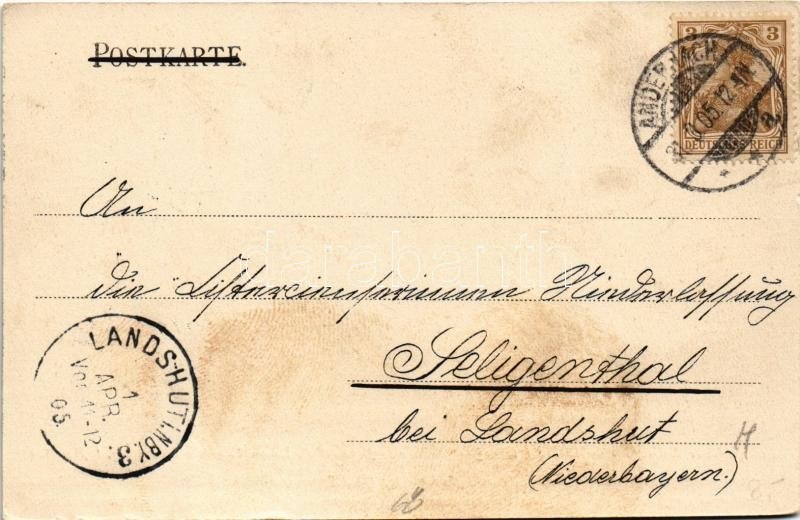 POSTKARTE.
3 3
DEUTSCHES REICH
ANDERNACH
.05.12-1N.
a
An
die Cistercienserinnen Niederlassung
Seligenthal
bei Landshut
(Niederbayern.)
LANDSHUT I.NBY. 3
1
APR.
VOR. 11-12
05
darabanth